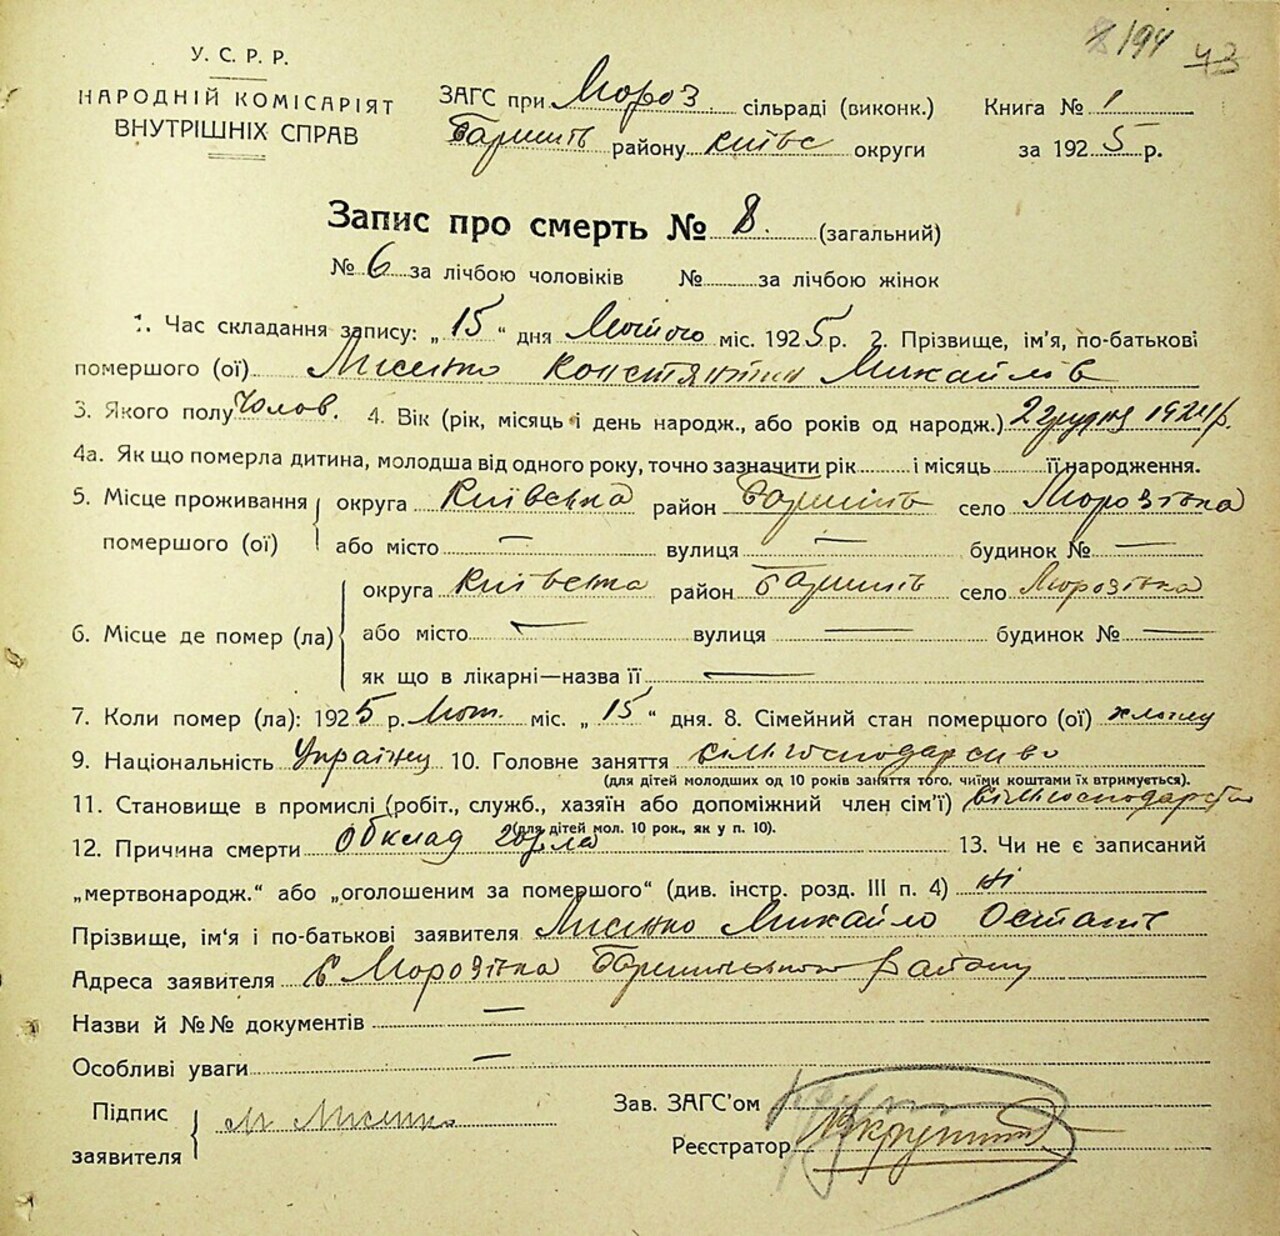 194 43
У. С. Р. Р.
НАРОДНІЙ КОМІСАРІЯТ
ВНУТРІШНІХ СПРАВ
ЗАГС при Мороз. сільраді (виконк.)
Баришів району Київс округи
Книга № 1
за 1925 р.
Запис про смерть № 8. (загальний)
№ 6 за лічбою чоловіків № за лічбою жінок
1. Час складання запису: „15“ дня Лютого міс. 1925 р. 2. Прізвище, ім'я, по-батькові
помершого (ої) Лисенко Константин Михайлів
3. Якого полу Чолов. 4. Вік (рік, місяць і день народж., або років од народж.) 2 грудня 1924 р.
4а. Як що померла дитина, молодша від одного року, точно зазначити рік і місяць її народження.
5. Місце проживання помершого (ої) округа Київська район Баришів село Морозівка
або місто — вулиця — будинок № —
6. Місце де помер (ла) округа Київська район Баришів село Морозівка
або місто — вулиця — будинок № —
як що в лікарні—назва її —
7. Коли помер (ла): 1925 р. Лют. міс. „15“ дня. 8. Сімейний стан помершого (ої)
9. Національність Українец 10. Головне заняття сільгосподарсиво
(для дітей молодших од 10 років заняття того, чиїми коштами їх втримується).
11. Становище в промислі (робіт., служб., хазяїн або допоміжний член сім'ї)
(для дітей мол. 10 рок., як у п. 10).
12. Причина смерти Обклад горла 13. Чи не є записаний
„мертвонародж.“ або „оголошеним за помершого“ (див. інстр. розд. III п. 4) ні
Прізвище, ім'я і по-батькові заявителя Лисенко Михайло Остапів
Адреса заявителя с Морозівка Баришівського району
Назви й №№ документів —
Особливі уваги —
Підпис заявителя М Лисенко
Зав. ЗАГС'ом
Реєстратор